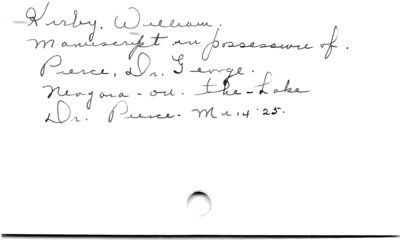 Kirby, William.
Manuscript in possession of.
Pierce, Dr. George.
Niagara-on-the-Lake
Dr. Pierce. Mr. 14 '25.